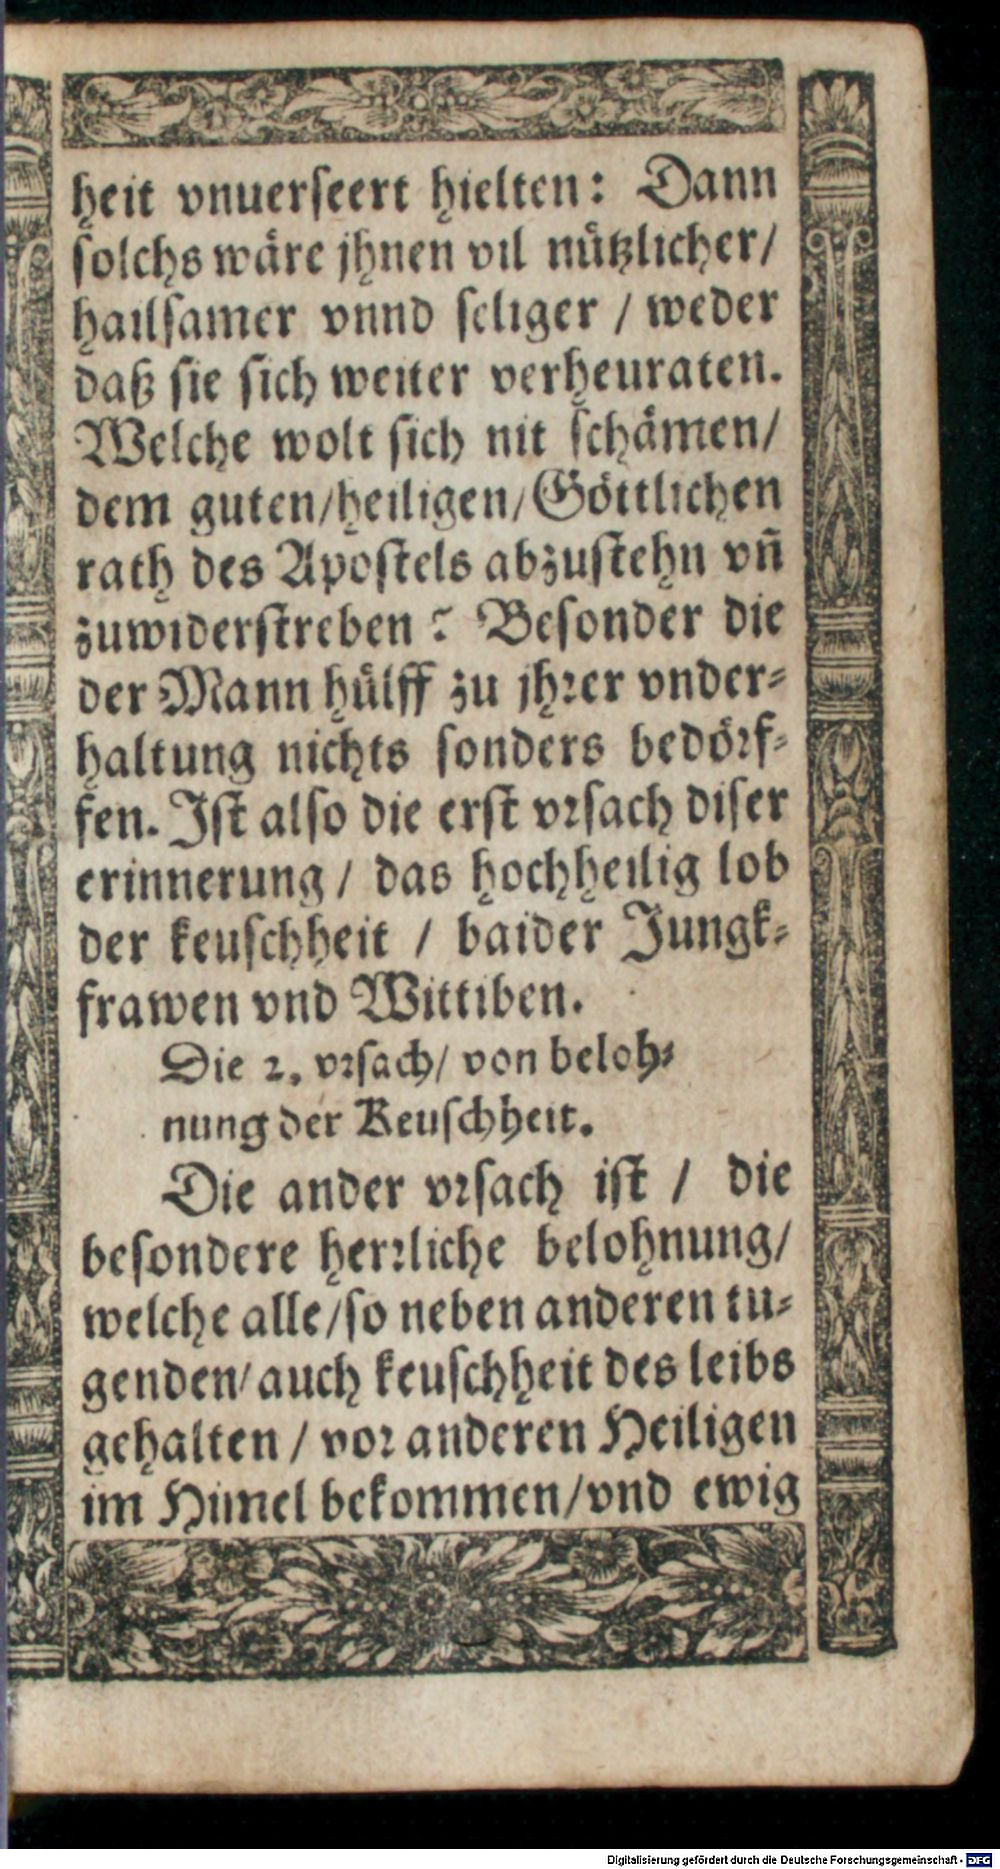 heit vnuerseert hielten: Dann
solchs wäre jhnen vil nützlicher/
hailsamer vnnd seliger / weder
daß sie sich weiter verheuraten.
Welche wolt sich nit schämen/
dem guten/heiligen/Göttlichen
rath des Apostels abzustehn vñ
zuwiderstreben? Besonder die
der Mann hülff zu jhrer vnder-
haltung nichts sonders bedörf-
fen. Ist also die erst vrsach diser
erinnerung / das hochheilig lob
der keuschheit / baider Jungk-
frawen vnd Wittiben.
Die 2. vrsach/ von beloh-
nung der Keuschheit.
Die ander vrsach ist / die
besondere herrliche belohnung/
welche alle/so neben anderen tu-
genden/auch keuschheit des leibs
gehalten / vor anderen Heiligen
im Himel bekommen/vnd ewig
Digitalisierung gefördert durch die Deutsche Forschungsgemeinschaft - DFG